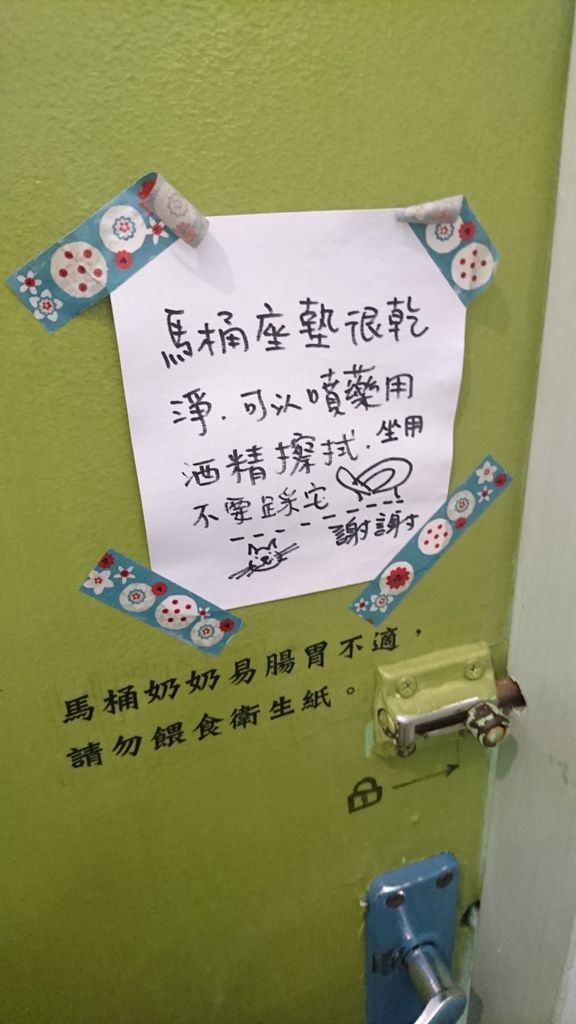 馬桶座墊很乾
淨.可以噴藥用
酒精擦拭.坐用
不要踩它
謝謝
馬桶奶奶易腸胃不適，
請勿餵食衛生紙。